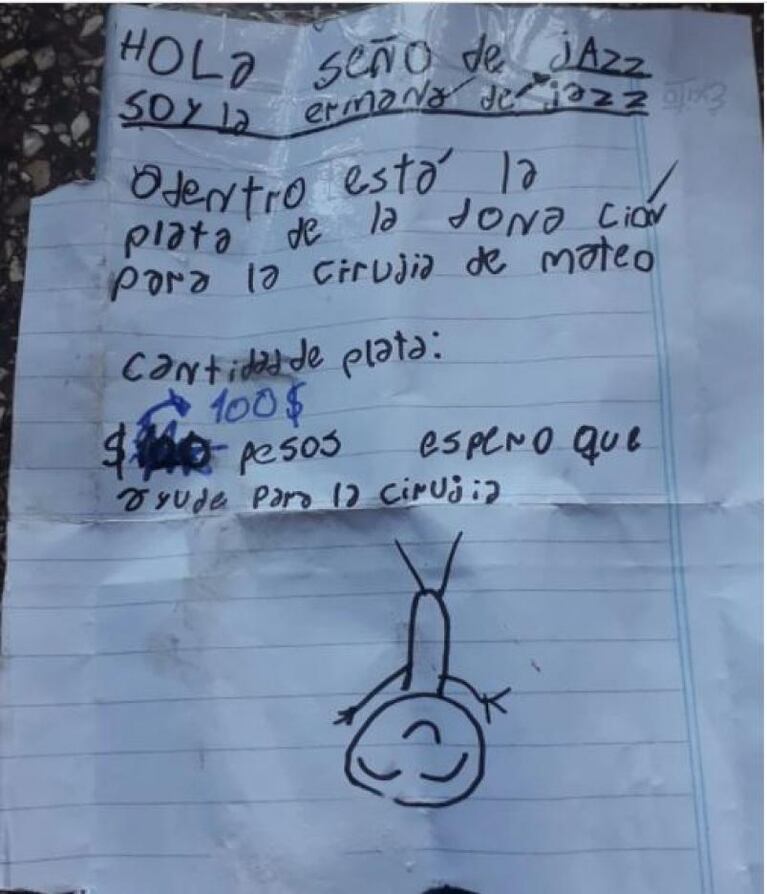 HOLA SEÑO de JAZZ
SOY la ermana de jazz
Adentro está la
plata de la donación
para la cirujia de mateo
cantidad de plata:
100$
$ pesos espero que
ayude para la cirujia